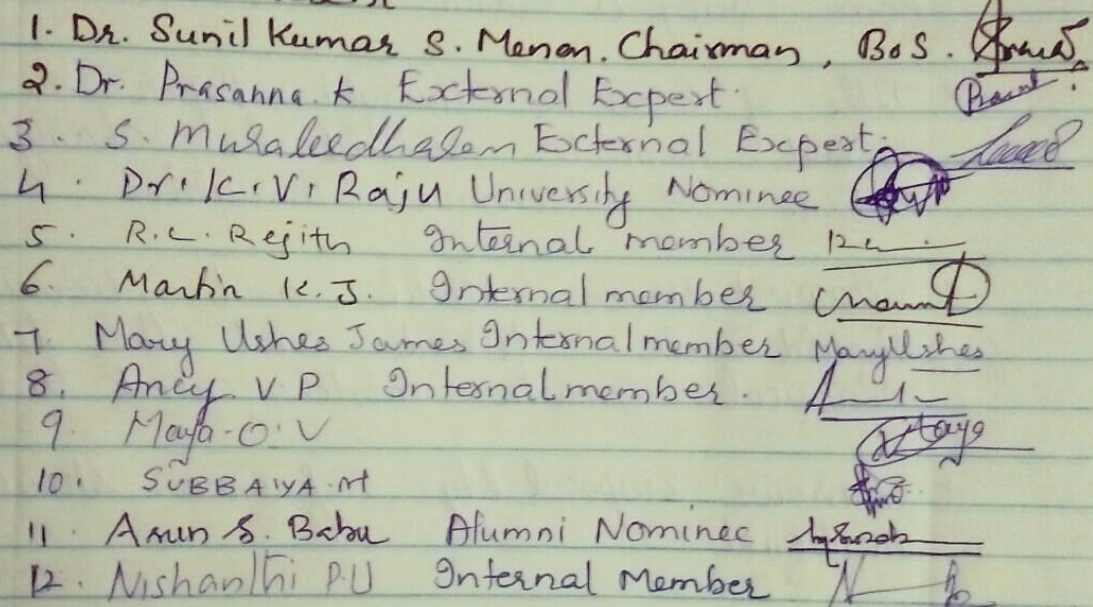 1. Dr. Sunil Kumar S. Menon. Chairman, BoS.
2. Dr. Prasanna. K External Expert.
3. S. Muraleedharan External Expert.
4. Dr. K. V. Raju University Nominee
5. R. L. Rejith Internal member
6. Martin K. J. Internal member
7. Mary Ushes James Internal member Mary Ushes
8. Ancy. V P Internal member.
9. Maya. O. V Maya
10. SUBBAIYA. M
11. Arun S. Babu Alumni Nominee
12. Nishanthi P.U Internal Member